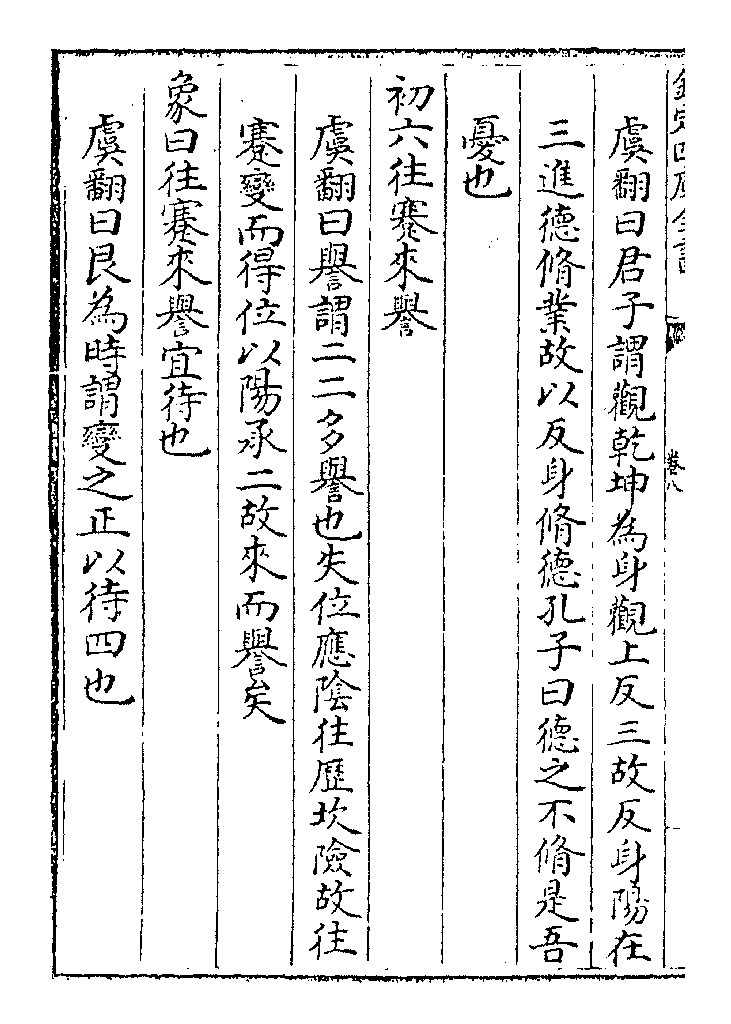 欽定四庫全書
卷八
虞翻曰君子謂觀乾坤為身觀上反三故反身陽在
三進德脩業故以反身脩德孔子曰德之不脩是吾
憂也
初六往蹇來譽
虞翻曰譽謂二二多譽也失位應陰往歷坎險故往
蹇變而得位以陽承二故來而譽矣
象曰往蹇來譽宜待也
虞翻曰艮為時謂變之正以待四也